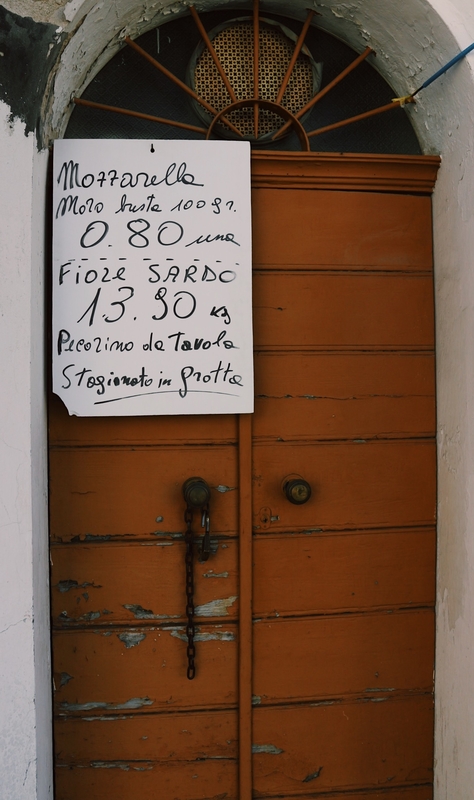 Mozzarella
Moro busta 100 gr.
0.80 una
FIORE SARDO
13.90 Kg
Pecorino da Tavola
Stagionato in grotta